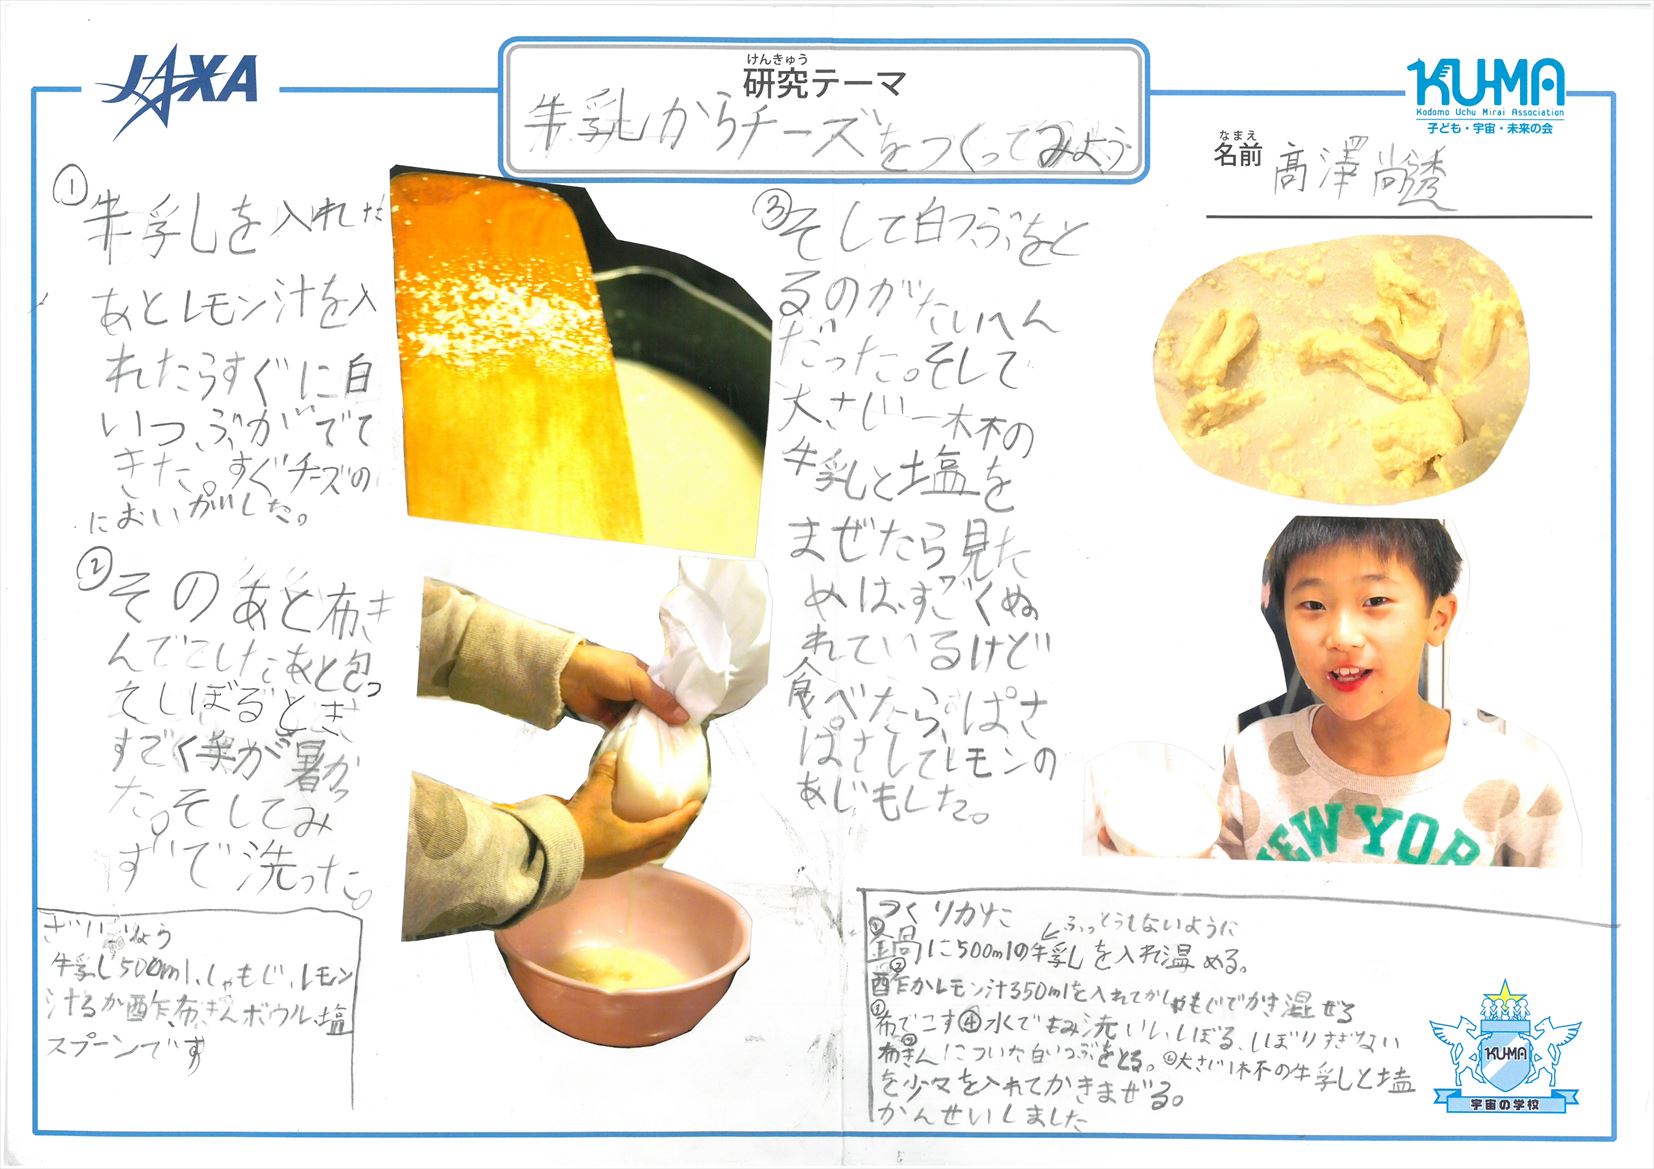 JAXA
けんきゅう
研究テーマ
牛乳からチーズをつくってみよう
KU-MA
Kodomo Uchu Mirai Association
子ども・宇宙・未来の会
なまえ
名前 髙澤尚透
① 牛乳を入れた
あとレモン汁を入
れたらすぐに白
いつぶがでて
きた。すぐチーズの
においがした。
② そのあと布き
んでこしたあと包っ
てしぼるとき
すごく
が暑かっ
た。そしてみ
ずで洗った。
③ そして白つぶをと
るのがたいへん
だった。そして
大さじ一本の
牛乳と塩を
まぜたら見た
めはすごくぬ
れているけど
食べたら、ぱさ
ぱさしてレモンの
あじもした。
ざいりょう
牛乳500ml、しゃもじ、レモン
汁るか酢布きんボウル塩
スプーンです
つくりかた
ふっとうしないように
① 鍋に500mlの牛乳を入れ温める。
② 酢かレモン汁350mlを入れてかしゃもじでかき混ぜる
③ 布でこす④水でもみ洗いし、しぼる、しぼりすぎない
布きんについた白いつぶをとる。⑥大さじ1本の牛乳と塩
を少々を入れてかきまぜる。
かんせいしました
NEW YORK
KU-MA
宇宙の学校